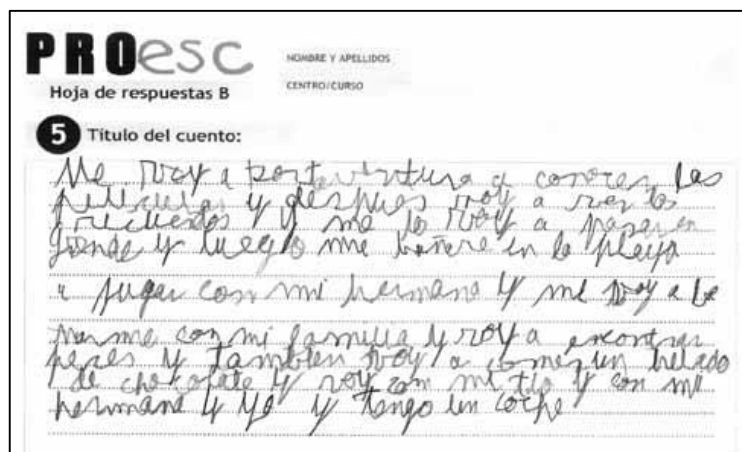 PROesc
NOMBRE Y APELLIDOS
CENTRO/CURSO
Hoja de respuestas B
5 Título del cuento:
Me voy a portaventura a conocer las
peliculas y despues voy a ver los
y me lo voy a pasar en
grande y luego me bañare en la playa
a jugar con mi hermana y me voy a
con mi familia y voy a encontrar
peces y tambien voy a comer un helado
de chocolate y voy con mi tio y con mi
hermana y yo y tengo un coche